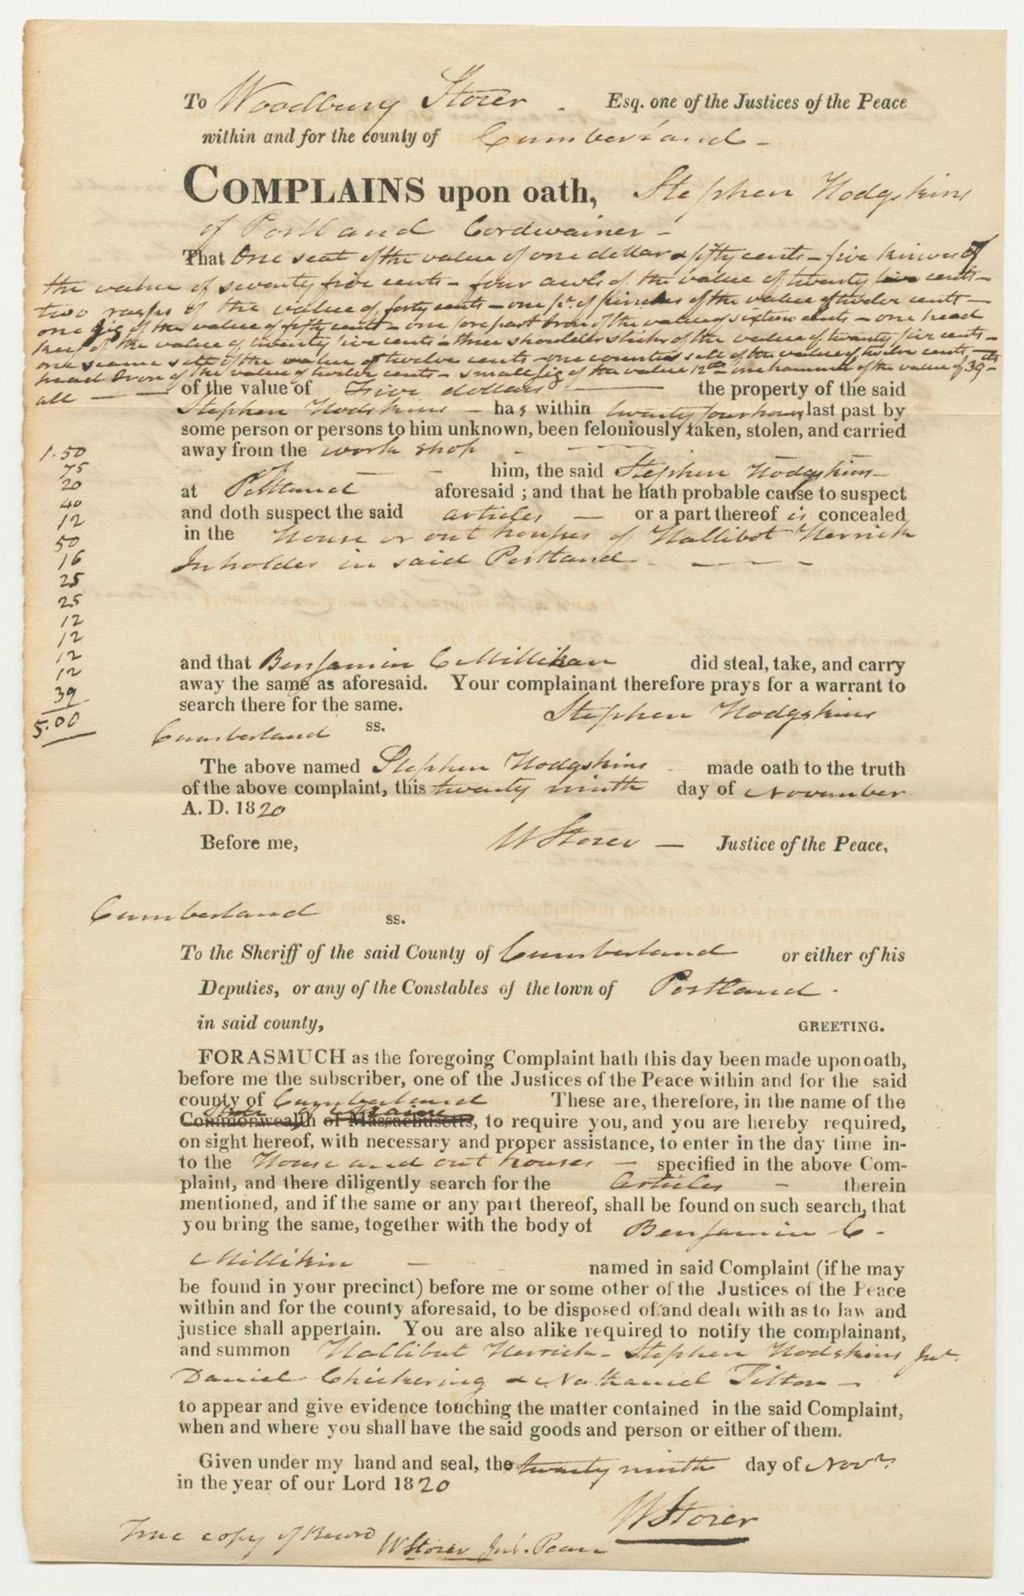 To Woodbury Storer . Esq. one of the Justices of the Peace
within and for the county of Cumberland -
COMPLAINS upon oath, Stephen Hodgskins
of Portland Cordwainer -
That One seat of the value of one dollar & fifty cents - five knives of
the value of seventy five cents - four awls of the value of twenty cents -
two rasps of the value of forty cents - one pr. of pinchers of the value of twelve cents -
one jig of the value of fifty cents - one forepart Iron of the value of sixteen cents - one head
key of the value of twenty five cents - three shoulder sticks of the value of twenty five cents -
one seam sett of the value of twelve cents - one counter sett of the value of twelve cents -
head Iron of the value of twelve cents - small jig of the value 12cts - one hammer of the value of 39cts -
all - of the value of Five dollars the property of the said
Stephen Hodskins - has within twenty four hours last past by
some person or persons to him unknown, been feloniously taken, stolen, and carried
away from the work shop - -
him, the said Stephen Hodgskins -
at Portland aforesaid ; and that he hath probable cause to suspect
and doth suspect the said articles - or a part thereof is concealed
in the House or out houses of Hallibot Herrick
Inholder in said Portland - - -
1.50
75
20
40
12
50
16
25
25
12
12
12
12
39
5.00
and that Benjamin C Millikan did steal, take, and carry
away the same as aforesaid. Your complainant therefore prays for a warrant to
search there for the same. Stephen Hodgskins
Cumberland ss.
The above named Stephen Hodgskins made oath to the truth
of the above complaint, this twenty ninth day of November
A. D. 1820
Before me, W Storer - Justice of the Peace,
Cumberland ss.
To the Sheriff of the said County of Cumberland or either of his
Deputies, or any of the Constables of the town of Portland .
in said county, GREETING.
FORASMUCH as the foregoing Complaint hath this day been made upon oath,
before me the subscriber, one of the Justices of the Peace within and for the said
county of Cumberland These are, therefore, in the name of the
State of Maine
Commonwealth of Massachusetts, to require you, and you are hereby required,
on sight hereof, with necessary and proper assistance, to enter in the day time in-
to the House and out houses - specified in the above Com-
plaint, and there diligently search for the Articles - therein
mentioned, and if the same or any part thereof, shall be found on such search, that
you bring the same, together with the body of Benjamin C.
Millikin - named in said Complaint (if he may
be found in your precinct) before me or some other of the Justices of the Peace
within and for the county aforesaid, to be disposed of and dealt with as to law and
justice shall appertain. You are also alike required to notify the complainant,
and summon Hallibut Herrick - Stephen Hodskins Jnr.
Daniel Chickering & Nathaniel Tilton -
to appear and give evidence touching the matter contained in the said Complaint,
when and where you shall have the said goods and person or either of them.
Given under my hand and seal, the twenty ninth day of Novr.
in the year of our Lord 1820
W Storer
True copy of Record W Storer Jus. Peace